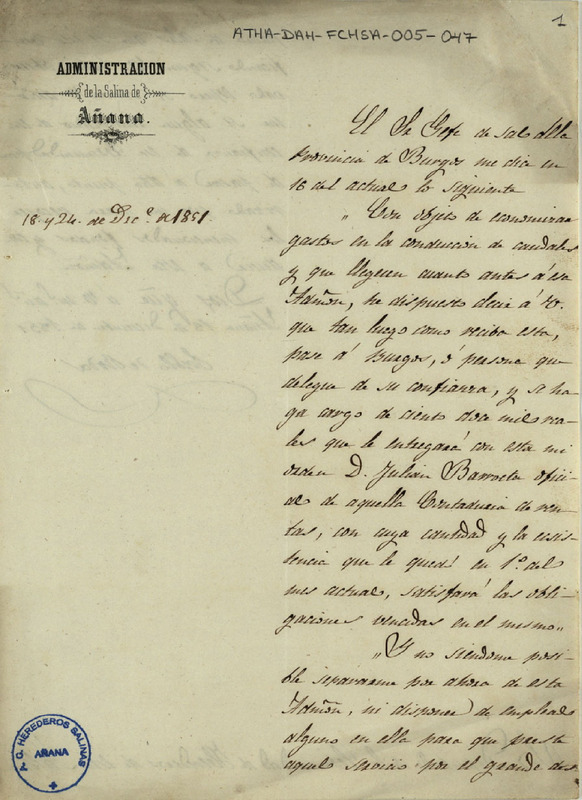 ATHA-DAH-FCHSA-005-047
1
ADMINISTRACION
de la Salina de
Añana.
18. y 24. de Dec.e de 1851.
El Sr Gefe de Sal de la
Provincia de Burgos me dice en
16 del actual lo siguiente
"Con objeto de economizar
gastos en la conduccion de caudales
y que lleguen cuanto antes á esa
Admon, he dispuesto decir á V.
que tan luego como reciba esta,
pase á Burgos, ó persona que
delegue de su confianza, y se ha-
ga cargo de ciento doce mil rea-
les que le entregará con esta mi
orden D. Julian Barroeta ofici-
al de aquella Contaduria de ren-
tas, con cuya cantidad y la ecsis-
tencia que le quedó en 1.o del
mes actual, satisfará las obli-
gaciones vencidas en el mismo"
"Y no siendome posi-
ble separarme por ahora de esta
Admon, ni disponer de empleado
alguno en ella para que preste
aquel servicio por el grande
G. HEREDEROS SALINAS
AÑANA